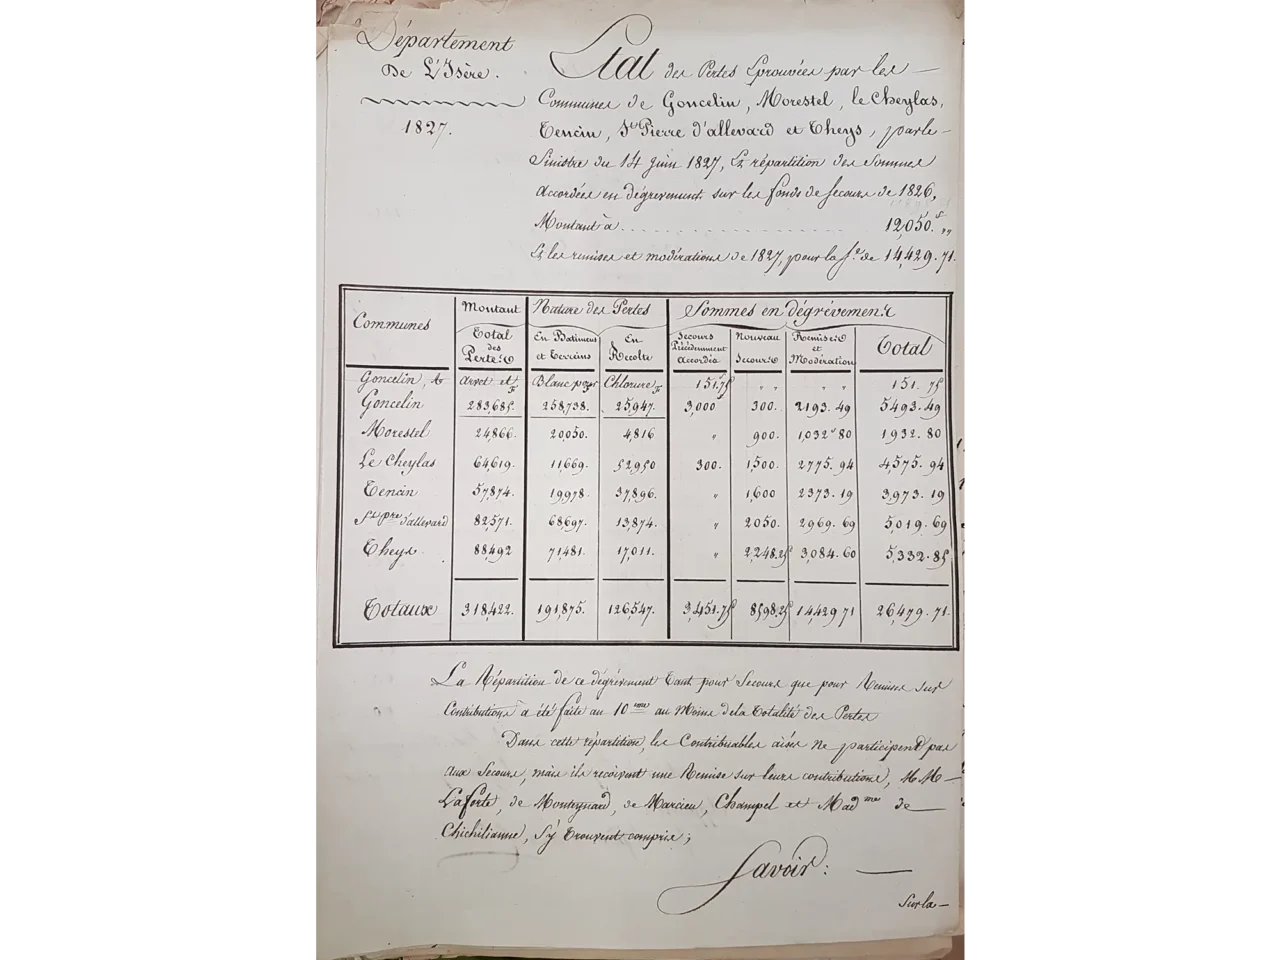 Département
De L'Isère.
1827.
Etat des Pertes Eprouvées par les
Communes de Goncelin, Morestel, le Cheylas,
Tencin, St Pierre d'allevard et Theys, par le
Sinistre du 14 juin 1827, Et répartition des Sommes
Accordées en dégrèvement sur les fonds de secours de 1826,
Montant à . . . . . . . . . . . . . . . 12,050.f „
Et les remises et modérations de 1827, pour la s.e de 14,429.71.
Communes Montant Nature des Pertes Sommes en dégrèvement
Total des Pertes En Batimens et Terreins En Récolte Secours Précédemment Accordés Nouveau Secours Remises et Modération Total
Goncelin, Arvet et Blanc pour Chlorure 151.75 „ „ „ „ 151.75
Goncelin 283,685. 258,738. 25,947. 3,000 300. 2193.49 5493.49
Morestel 24,866. 20,050. 4,816 „ 900. 1,032.80 1932.80
Le Cheylas 64,619. 11,669. 52,950 300. 1,500. 2775.94 4,575.94
Tencin 57,874. 19,978. 37,896. „ 1,600 2373.19 3,973.19
St pre d'allevard 82,571. 68,697. 13,874. „ 2050. 2969.69 5,019.69
Theys 88,492 71,481. 17,011. „ 2,248.25 3,084.60 5,332.85
Totaux 318,422. 191,875. 126,547. 3,451.75 8598.25 14,429 71 26,479.71.
La Répartition de ce dégrèvement tant pour Secours que pour Remises sur
Contributions à été faite au 10eme au Moins de la Totalité des Pertes
Dans cette répartition, les Contribuables aisés ne participent pas
aux Secours, mais ils reçoivent une Remise sur leurs contributions, M.M.
Laforte, de Monteynard, de Marcieu, Champel et Mad.me de
Chichilianne, s'y trouvent compris;
Savoir:
Sur la